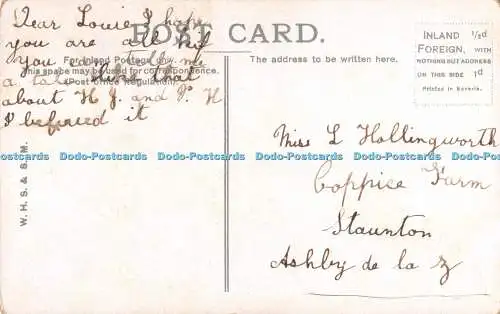 POST CARD.
Dear Louie I hope
you are all
you
For Inland Postage only
This space may be used for correspondence.
(Post Office Regulation).
a like that
about H J. and P. H
I it
The address to be written here.
INLAND ½d
FOREIGN, WITH
NOTHING BUT ADDRESS
ON THIS SIDE 1d
Printed in Bavaria.
Miss L Hollingworth
Coppice Farm
Staunton
Ashby de la Z
W. H. S. & S. M.
Dodo-Postcards Dodo-Postcards Dodo-Postcards Dodo-Postcards Dodo-Postcards